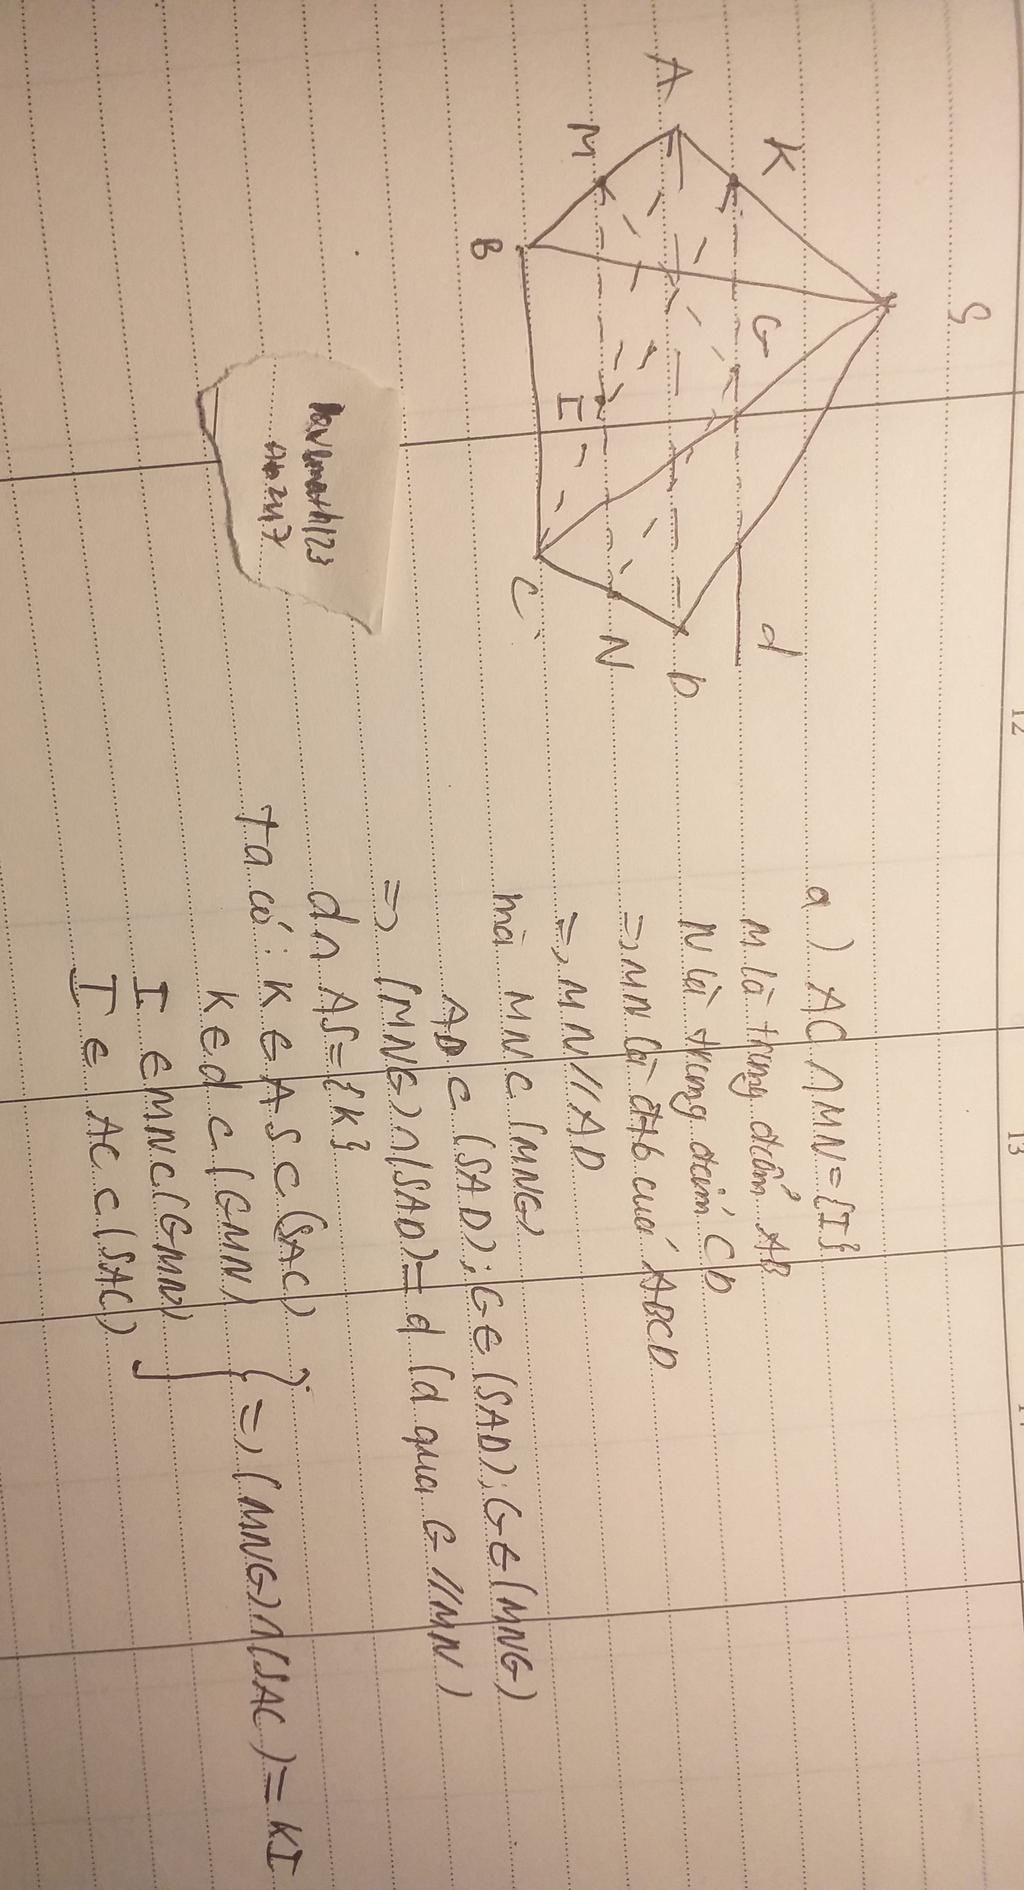 12
13
S
K
A
G
d
M
I
B
N
D
C
a) AC ∩ MN = {I}
M là trung điểm AB
N là trung điểm CD
=> MN là đtb của ABCD
=> MN // AD
mà MN ⊂ (MNG)
AD ⊂ (SAD); G ∈ (SAD); G ∈ (MNG)
=> (MNG) ∩ (SAD) = d (d qua G // MN)
d ∩ AS = {K}
Ta có: K ∈ AS ⊂ (SAC)
K ∈ d ⊂ (GMN)
} => (MNG) ∩ (SAC) = KI
I ∈ MN ⊂ (GMN)
I ∈ AC ⊂ (SAC)